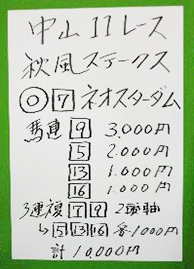 中山11レース
秋風ステークス
◎ 7 ネオスターダム
馬連 9 3,000円
5 2,000円
13 1,000円
16 1,000円
3連複 7 9 2頭軸
↳ 5 13 16 各1000円
計 10,000円